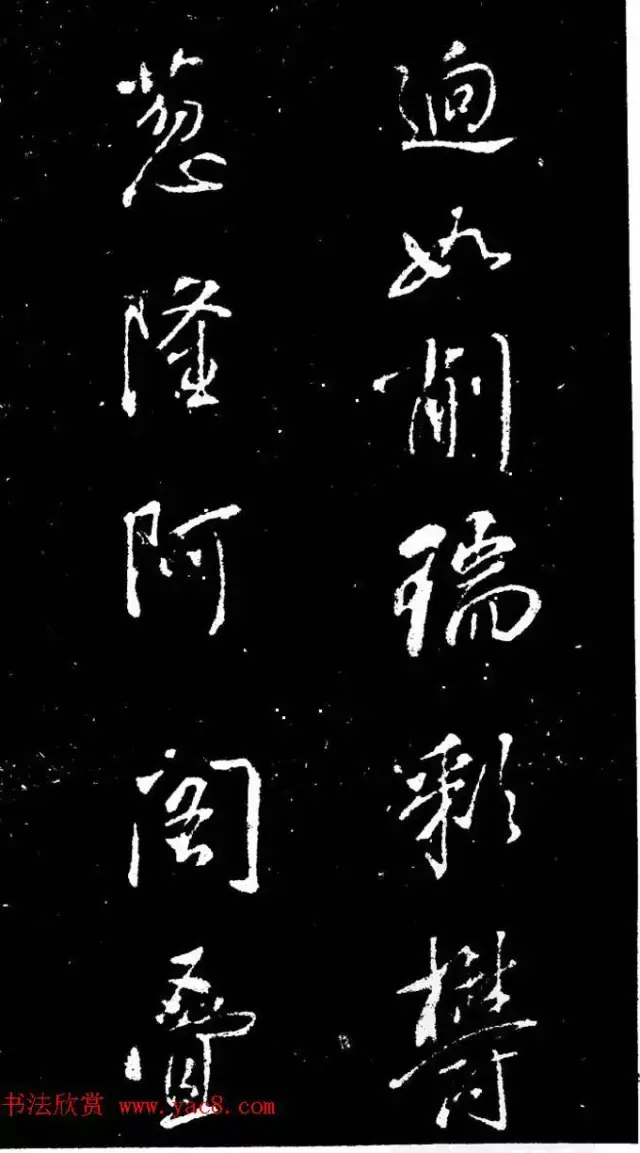 逈如削瑞彩欝
葱隆阿閣疊
书法欣赏 www.yac8.com